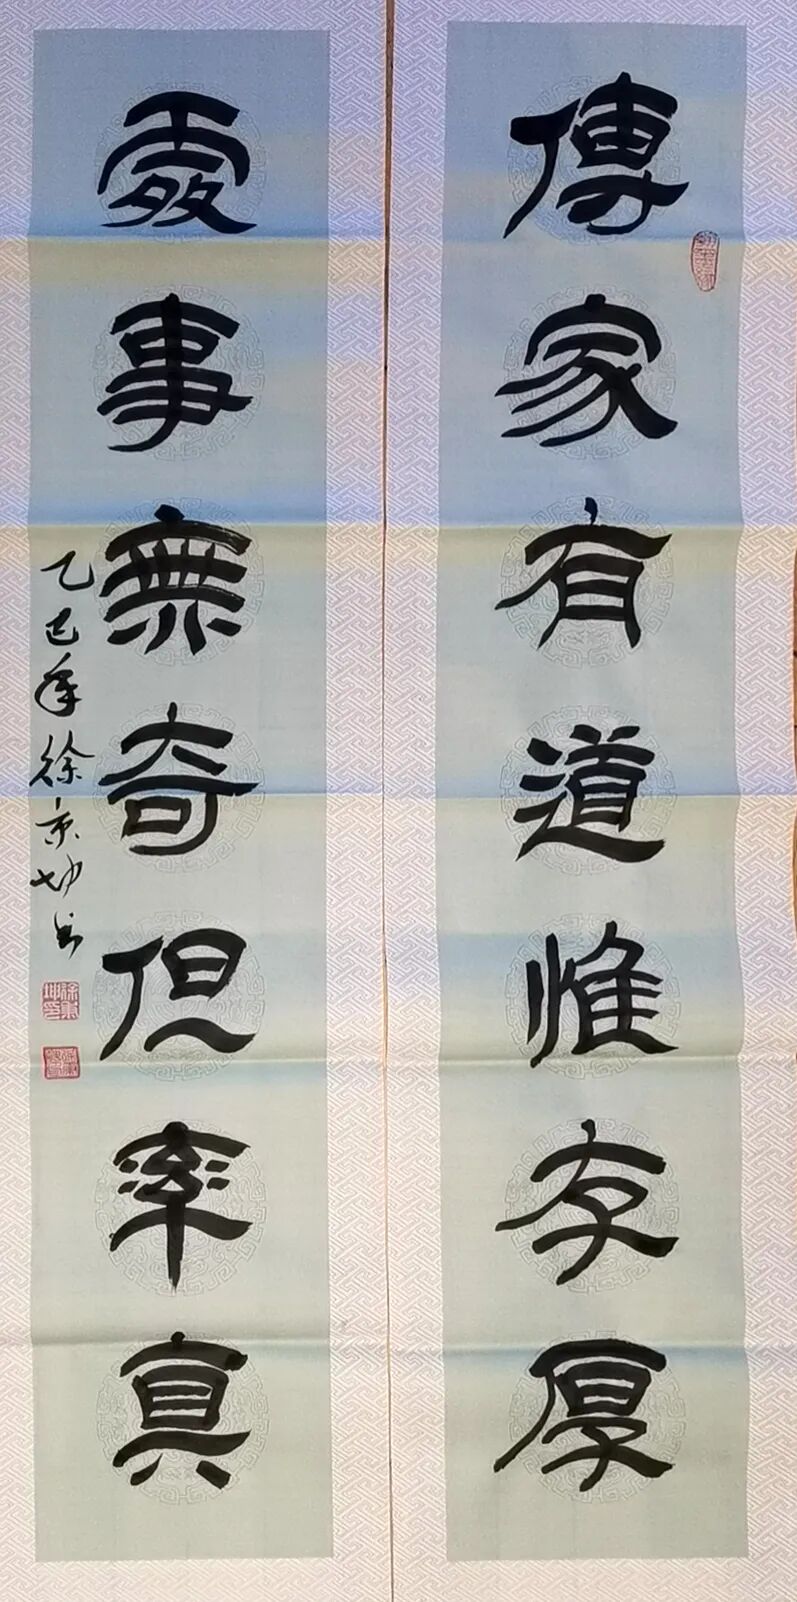 傳家有道惟存厚
處事無奇但率真
乙巳年徐京坳书